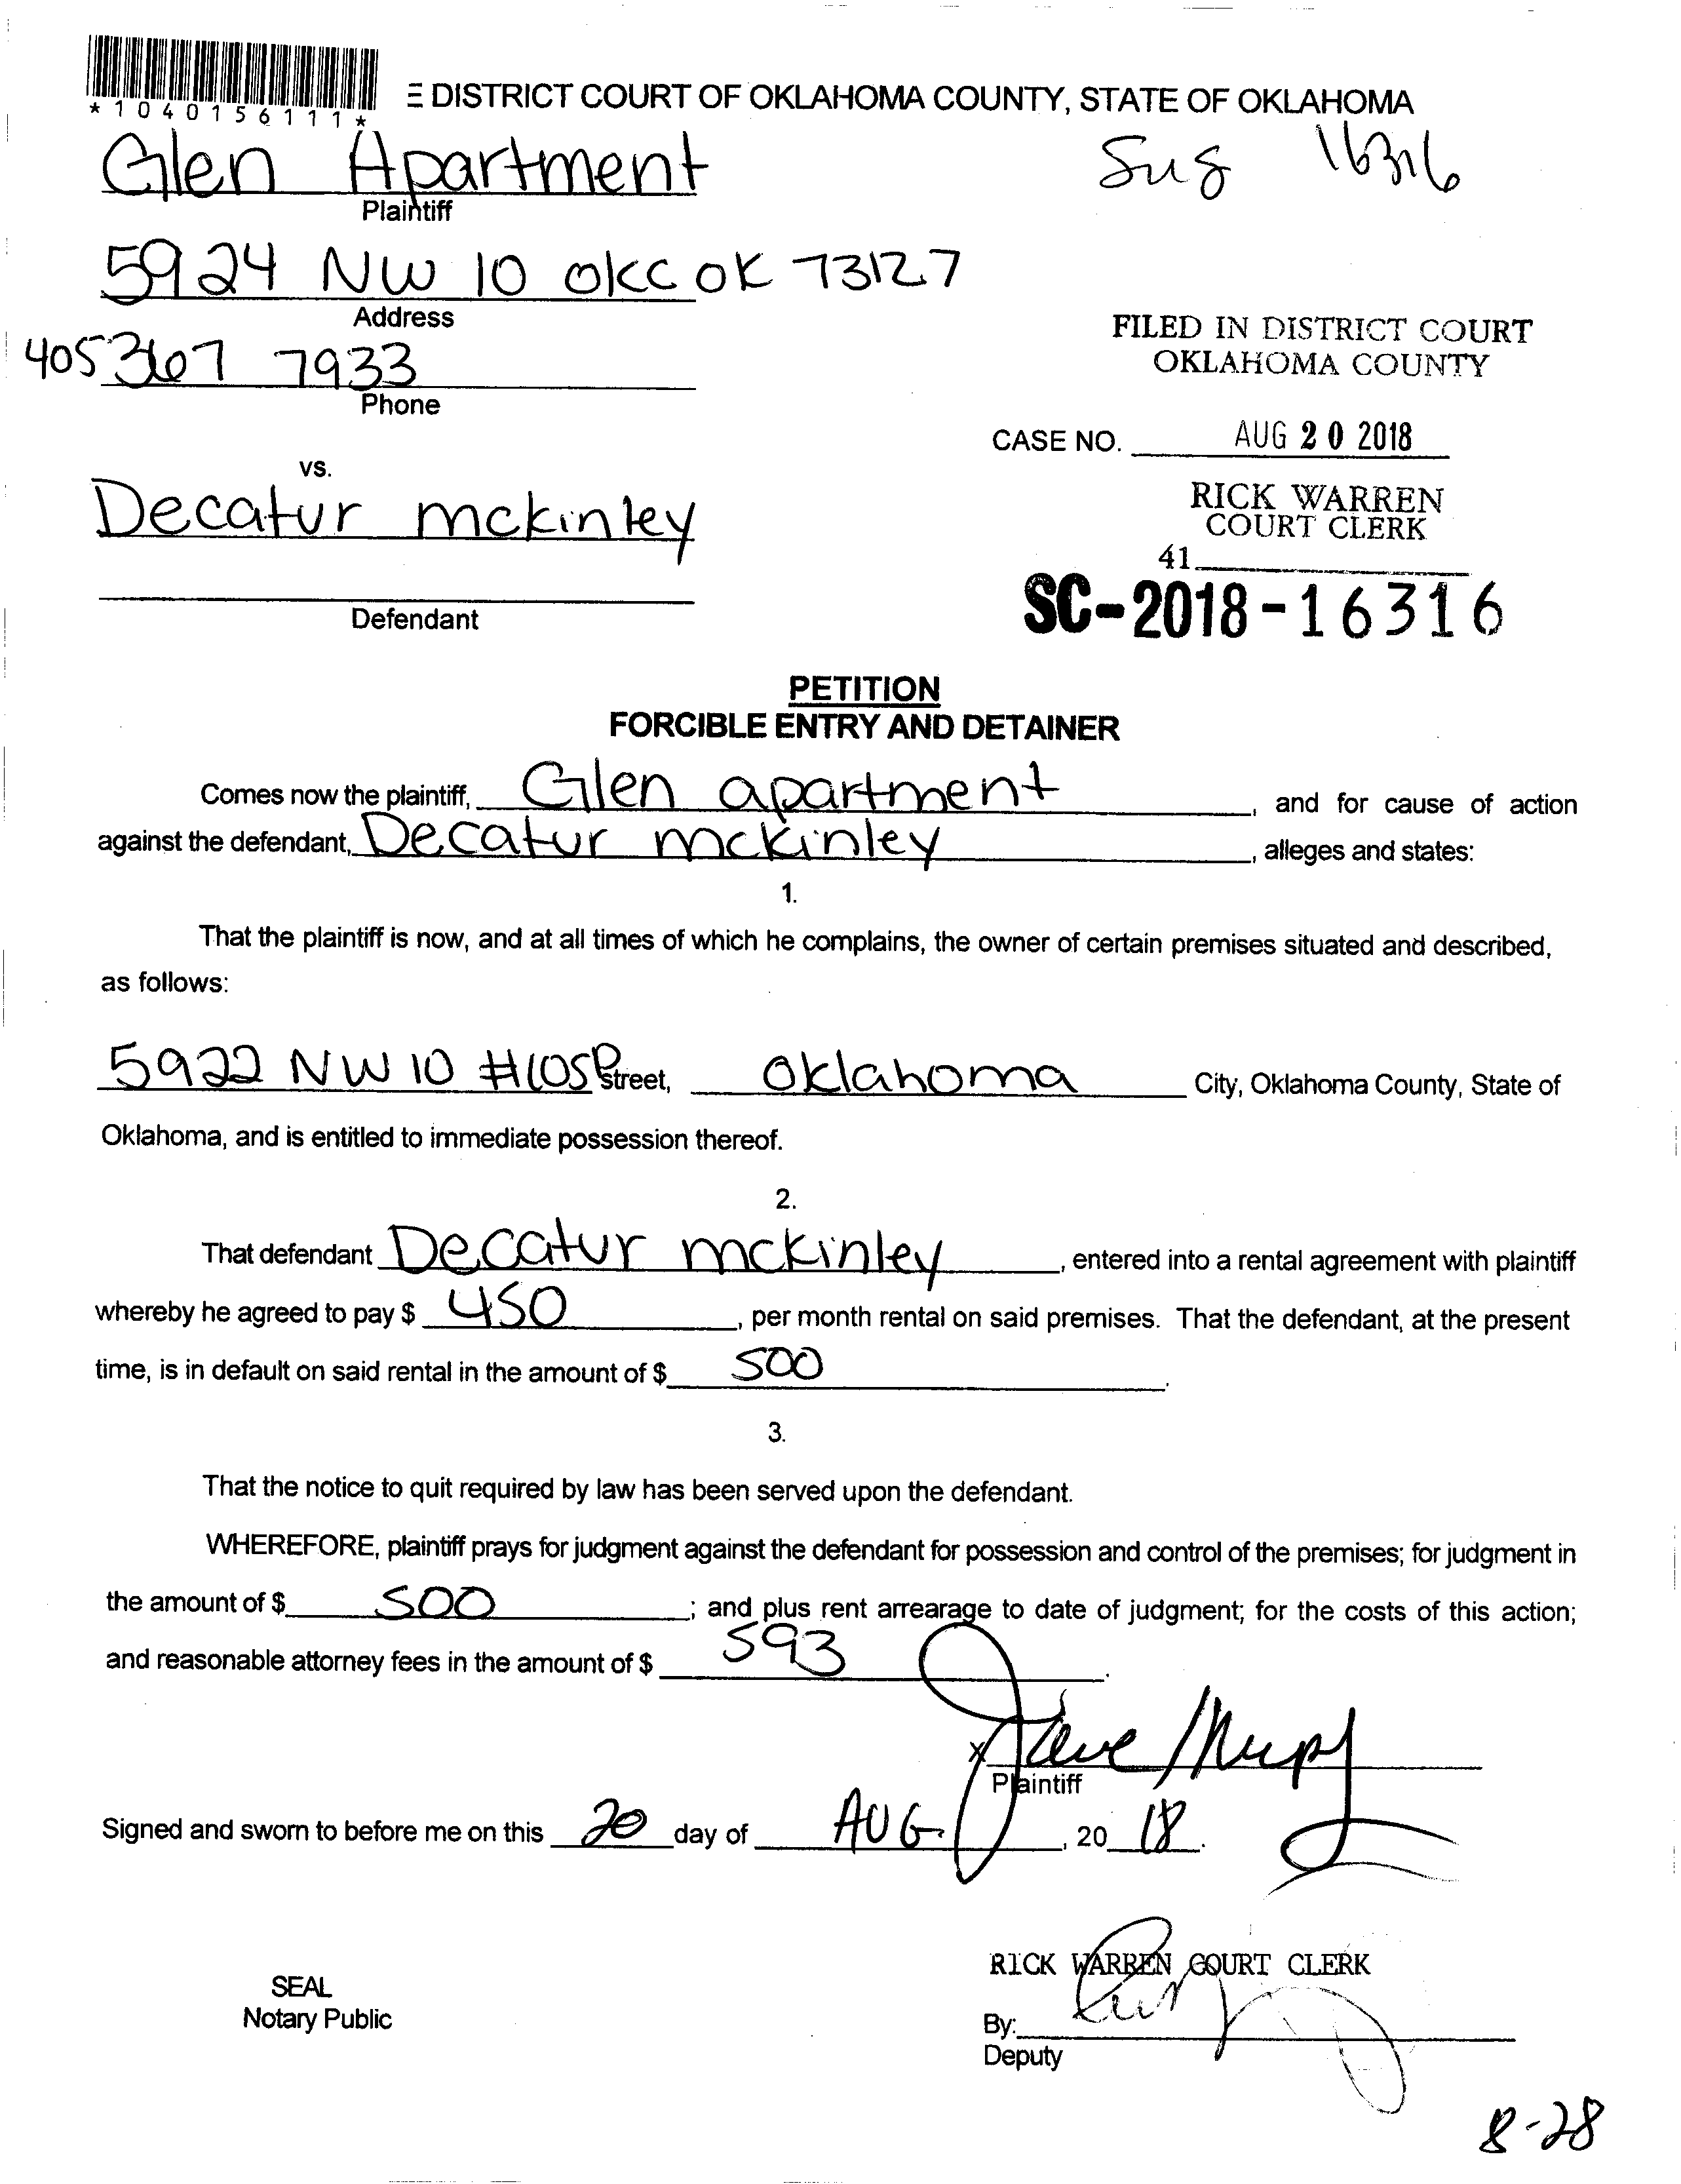 *1040156111*
E DISTRICT COURT OF OKLAHOMA COUNTY, STATE OF OKLAHOMA
Glen Apartment
Plaintiff
16316
5924 NW 10 OKC OK 73127
Address
405 367 7933
Phone
FILED IN DISTRICT COURT
OKLAHOMA COUNTY
CASE NO. AUG 20 2018
vs.
Decatur mckinley
Defendant
RICK WARREN
COURT CLERK
41
SC-2018-16316
PETITION
FORCIBLE ENTRY AND DETAINER
Comes now the plaintiff, Glen apartment, and for cause of action
against the defendant, Decatur mckinley, alleges and states:
1.
That the plaintiff is now, and at all times of which he complains, the owner of certain premises situated and described,
as follows:
5922 NW 10 Street, Oklahoma City, Oklahoma County, State of
Oklahoma, and is entitled to immediate possession thereof.
2.
That defendant Decatur mckinley, entered into a rental agreement with plaintiff
whereby he agreed to pay $ 450, per month rental on said premises. That the defendant, at the present
time, is in default on said rental in the amount of $ 500.
3.
That the notice to quit required by law has been served upon the defendant.
WHEREFORE, plaintiff prays for judgment against the defendant for possession and control of the premises; for judgment in
the amount of $ 500; and plus rent arrearage to date of judgment; for the costs of this action;
and reasonable attorney fees in the amount of $ 593.
X
Plaintiff
Signed and sworn to before me on this 20 day of AUG, 20 18.
RICK WARREN COURT CLERK
SEAL
Notary Public
By:
Deputy
8-28